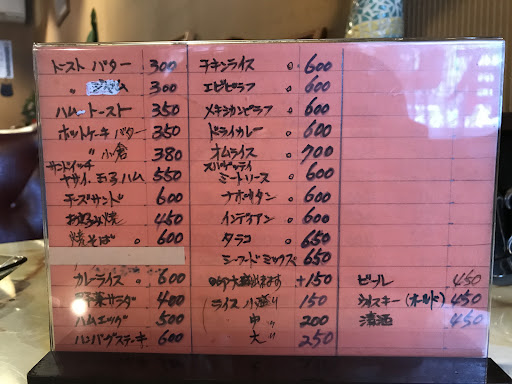 トースト バター 300
〃 ジャム 300
ハムトースト 350
ホットケーキ バター 350
〃 小倉 380
サンドイッチ
ヤサイ、玉子、ハム 550
チーズサンド 600
お好み焼 450
焼そば 。 600
カレーライス 。 600
野菜サラダ 400
ハムエッグ 500
ハンバグステーキ 600
チキンライス 。 600
エビピラフ 。 600
メキシカンピラフ 。 600
ドライカレー 。 600
オムライス 。 700
スパゲッティ
ミートソース 。 600
ナポリタン 。 600
インデアン 。 600
タラコ 。 650
シーフードミックス 650
大盛出来ます +150
(ライス 小盛り 150
中 〃 200
大 〃 250
ビール 450
ウイスキー (オールド) 450
清酒 450